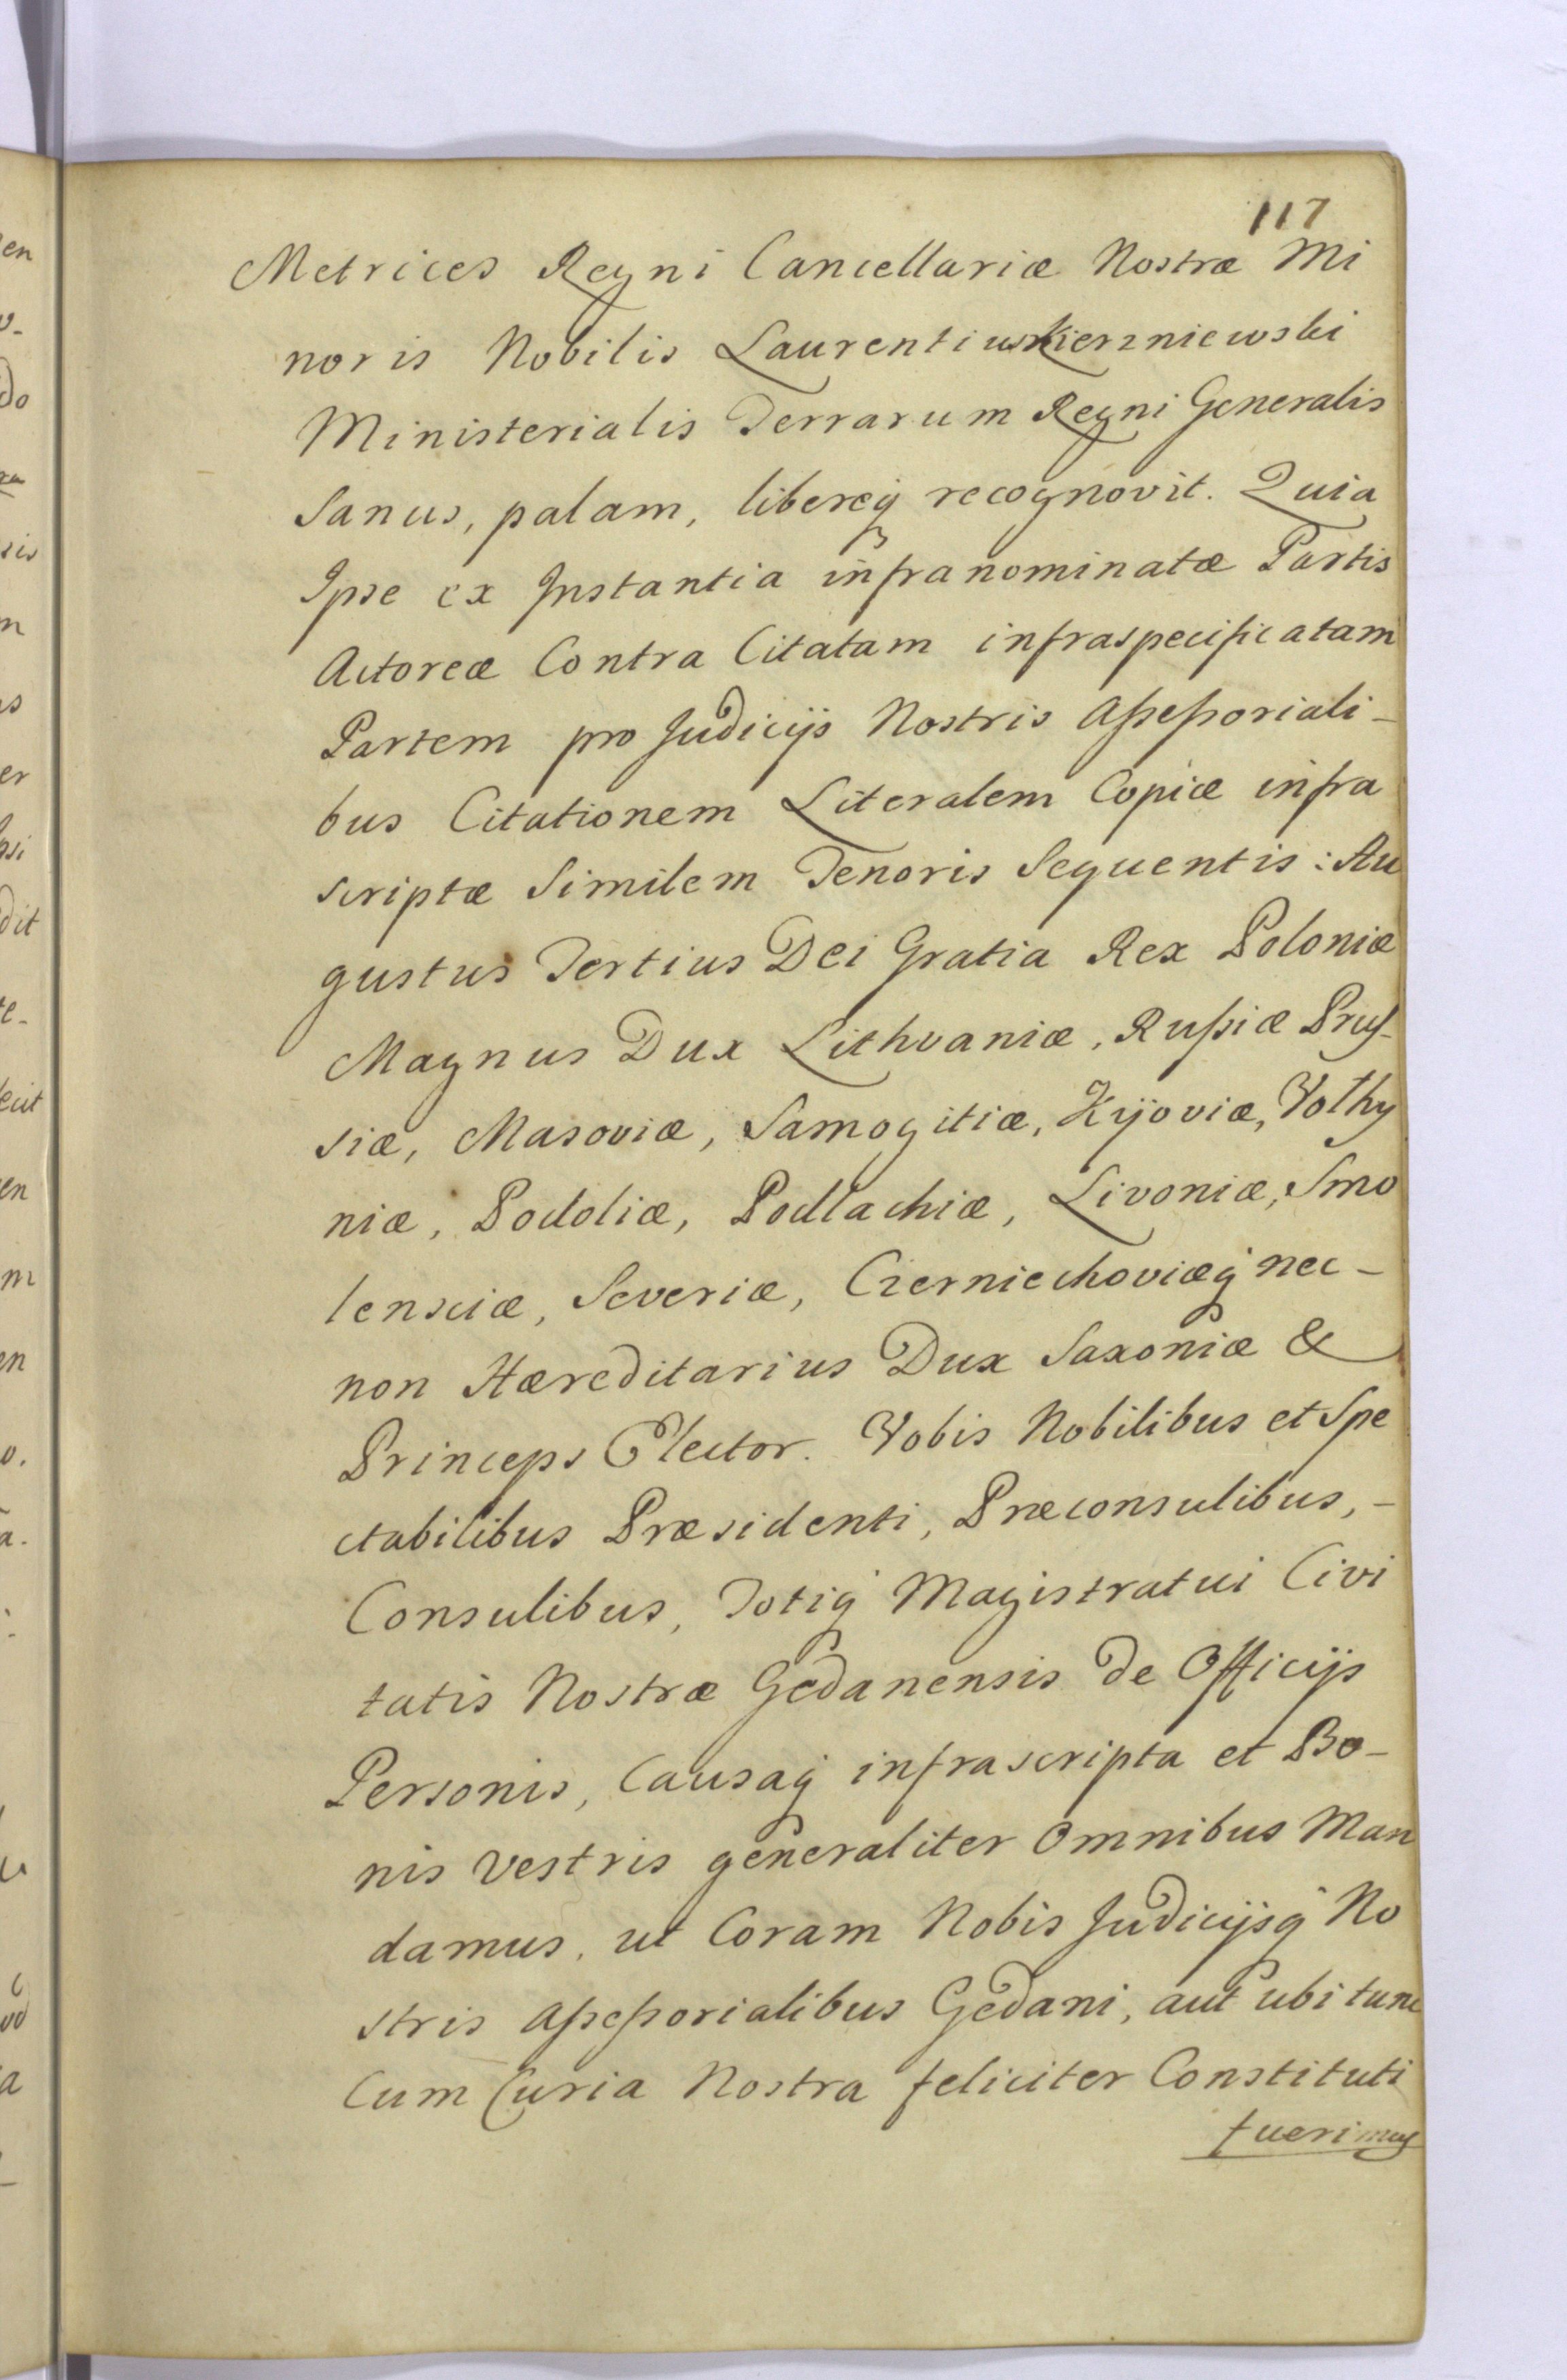 117
Metrices Regni Cancellariæ Nostræ Mi
noris Nobilis Laurentius Kierzniewski
Ministerialis Terrarum Regni Generalis
Sanus, palam, libereq recognovit. Quia
Ipse ex Instantia infranominatæ Partis
Actoreæ Contra Citatam infraspecificatam
Partem pro Judicijs Nostris Assessoriali-
bus Citationem Literalem Copiæ infra
scriptæ Similem Tenoris Sequentis: Au
gustus Tertius Dei Gratia Rex Poloniæ
Magnus Dux Lithvaniæ, Russiæ Prus-
siæ, Masoviæ, Samogitiæ, Kijoviæ, Volhy
niæ, Podoliæ, Podlachiæ, Livoniæ, Smo
lensciæ, Severiæ, Czerniechoviæq nec-
non Hæreditarius Dux Saxoniæ &
Princeps Elector. Vobis Nobilibus et Spe
ctabilibus Præsidenti, Præconsulibus, -
Consulibus, Totiq Magistratui Civi
tatis Nostræ Gedanensis de Officijs
Personis, Causaq infrascripta et Bo-
nis vestris generaliter Omnibus Man
damus, ut Coram Nobis Judicijsq No
stris Assessorialibus Gedani, aut ubi tunc
Cum Curia Nostra feliciter Constituti
fuerimus